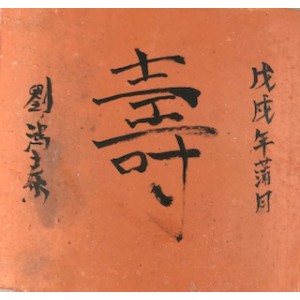 戊戌年蒲月
壽
劉鴻